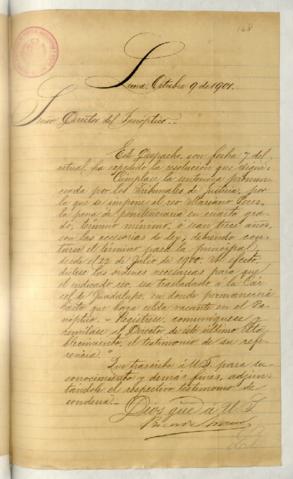 168
Lima, Octubre 9 de 1901.
Señor Director del Panóptico.
Este Despacho, con fecha 7 del
actual, ha expedido la resolución que sigue:
"Cúmplase la sentencia pronun-
ciada por los Tribunales de Justicia, por
la que se impone al reo Mariano
la pena de penitenciaria en cuarto gra-
do, término mínimo, ó sean trece años,
con las accesorias de ley; debiendo con-
tarse el término para la principal,
desde el 22 de Julio de 1900. Al efecto
dense las órdenes necesarias para que
el indicado reo, sea trasladado a la Cár-
cel de Guadalupe, en donde permanecerá
hasta que haya celda vacante en el Pa-
nóptico. Regístrese, comuníquese y
remítase al Director de este último Esta-
blecimiento, el testimonio de su refe-
rencia."
Que trascribo á U.S. para su
conocimiento y demás fines, adjun-
tándole el respectivo testimonio de
condena.
Dios gue. á U.S.